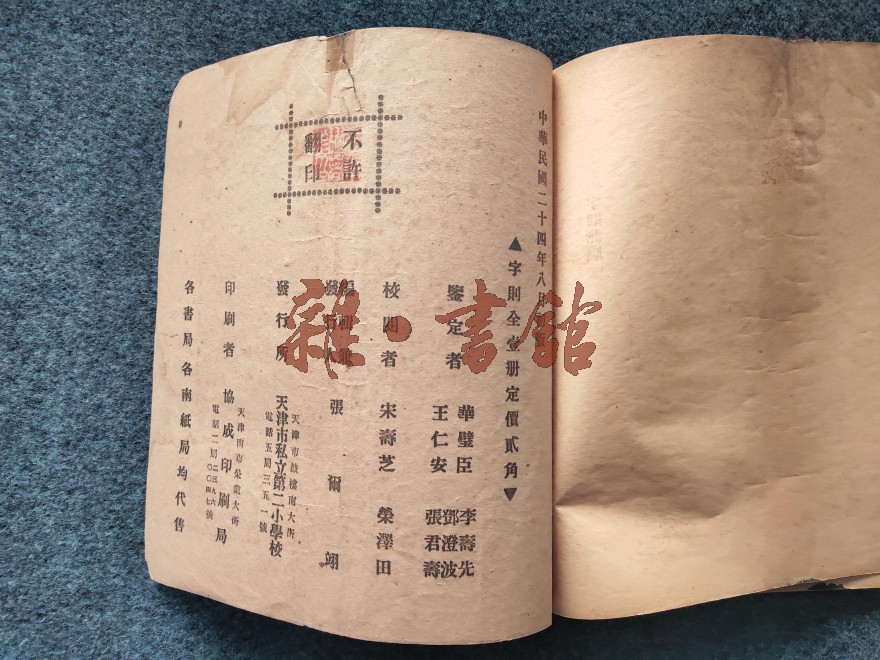 中華民國二十四年八月
▲字則全壹册定價貳角▼
不許
翻印
鑒定者 華璧臣 李壽先
王仁安 鄧澄波
張君壽
校閱者 宋壽芝 榮澤田
發行人 張爾翊
發行所 天津市私立第二小學校
天津市鼓樓南大街
電話五局三五一號
印刷者 協成印刷局
天津南市榮業大街
各書局各南紙局均代售
雜·書館